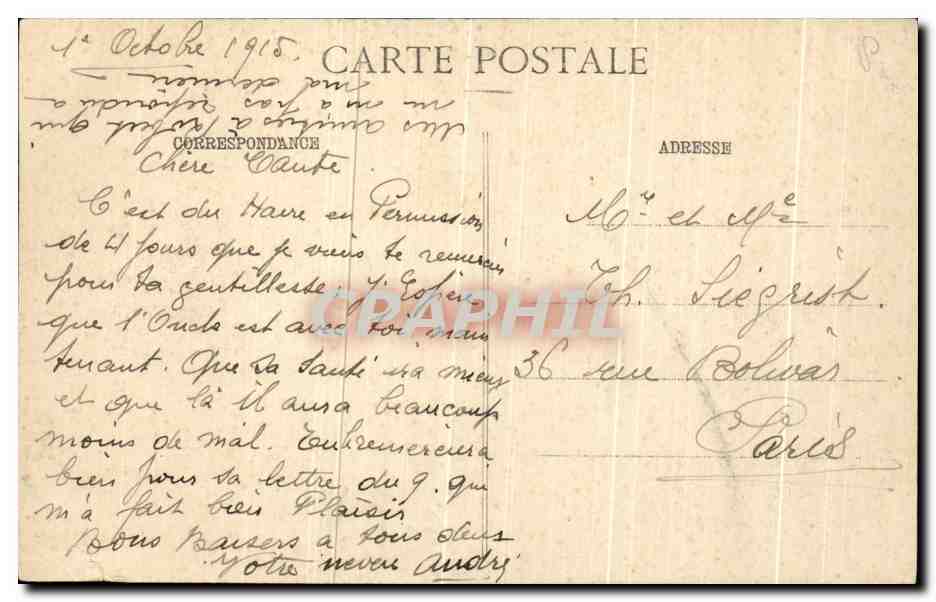 1e Octobre 1915.
CARTE POSTALE
Mes amitiés à qui
m'a pas répondu a
ma
CORRESPONDANCE
ADRESSE
Chère Tante.
C'est du Havre en Permission
de 4 jours que je viens te remercier
pour ta gentillesse. J'Espère
que l'Oncle est avec toi main
tenant. Que sa santé ira mieux
et que là il aura beaucoup
moins de mal. Tu le remerciera
bien pour sa lettre du 9. qui
m'a fait bien Plaisir
Bons Baisers à tous deux
Votre neveu André
Mr et Me
Th. Siegrist.
36 rue Bolivar
Paris
CPAPHIL